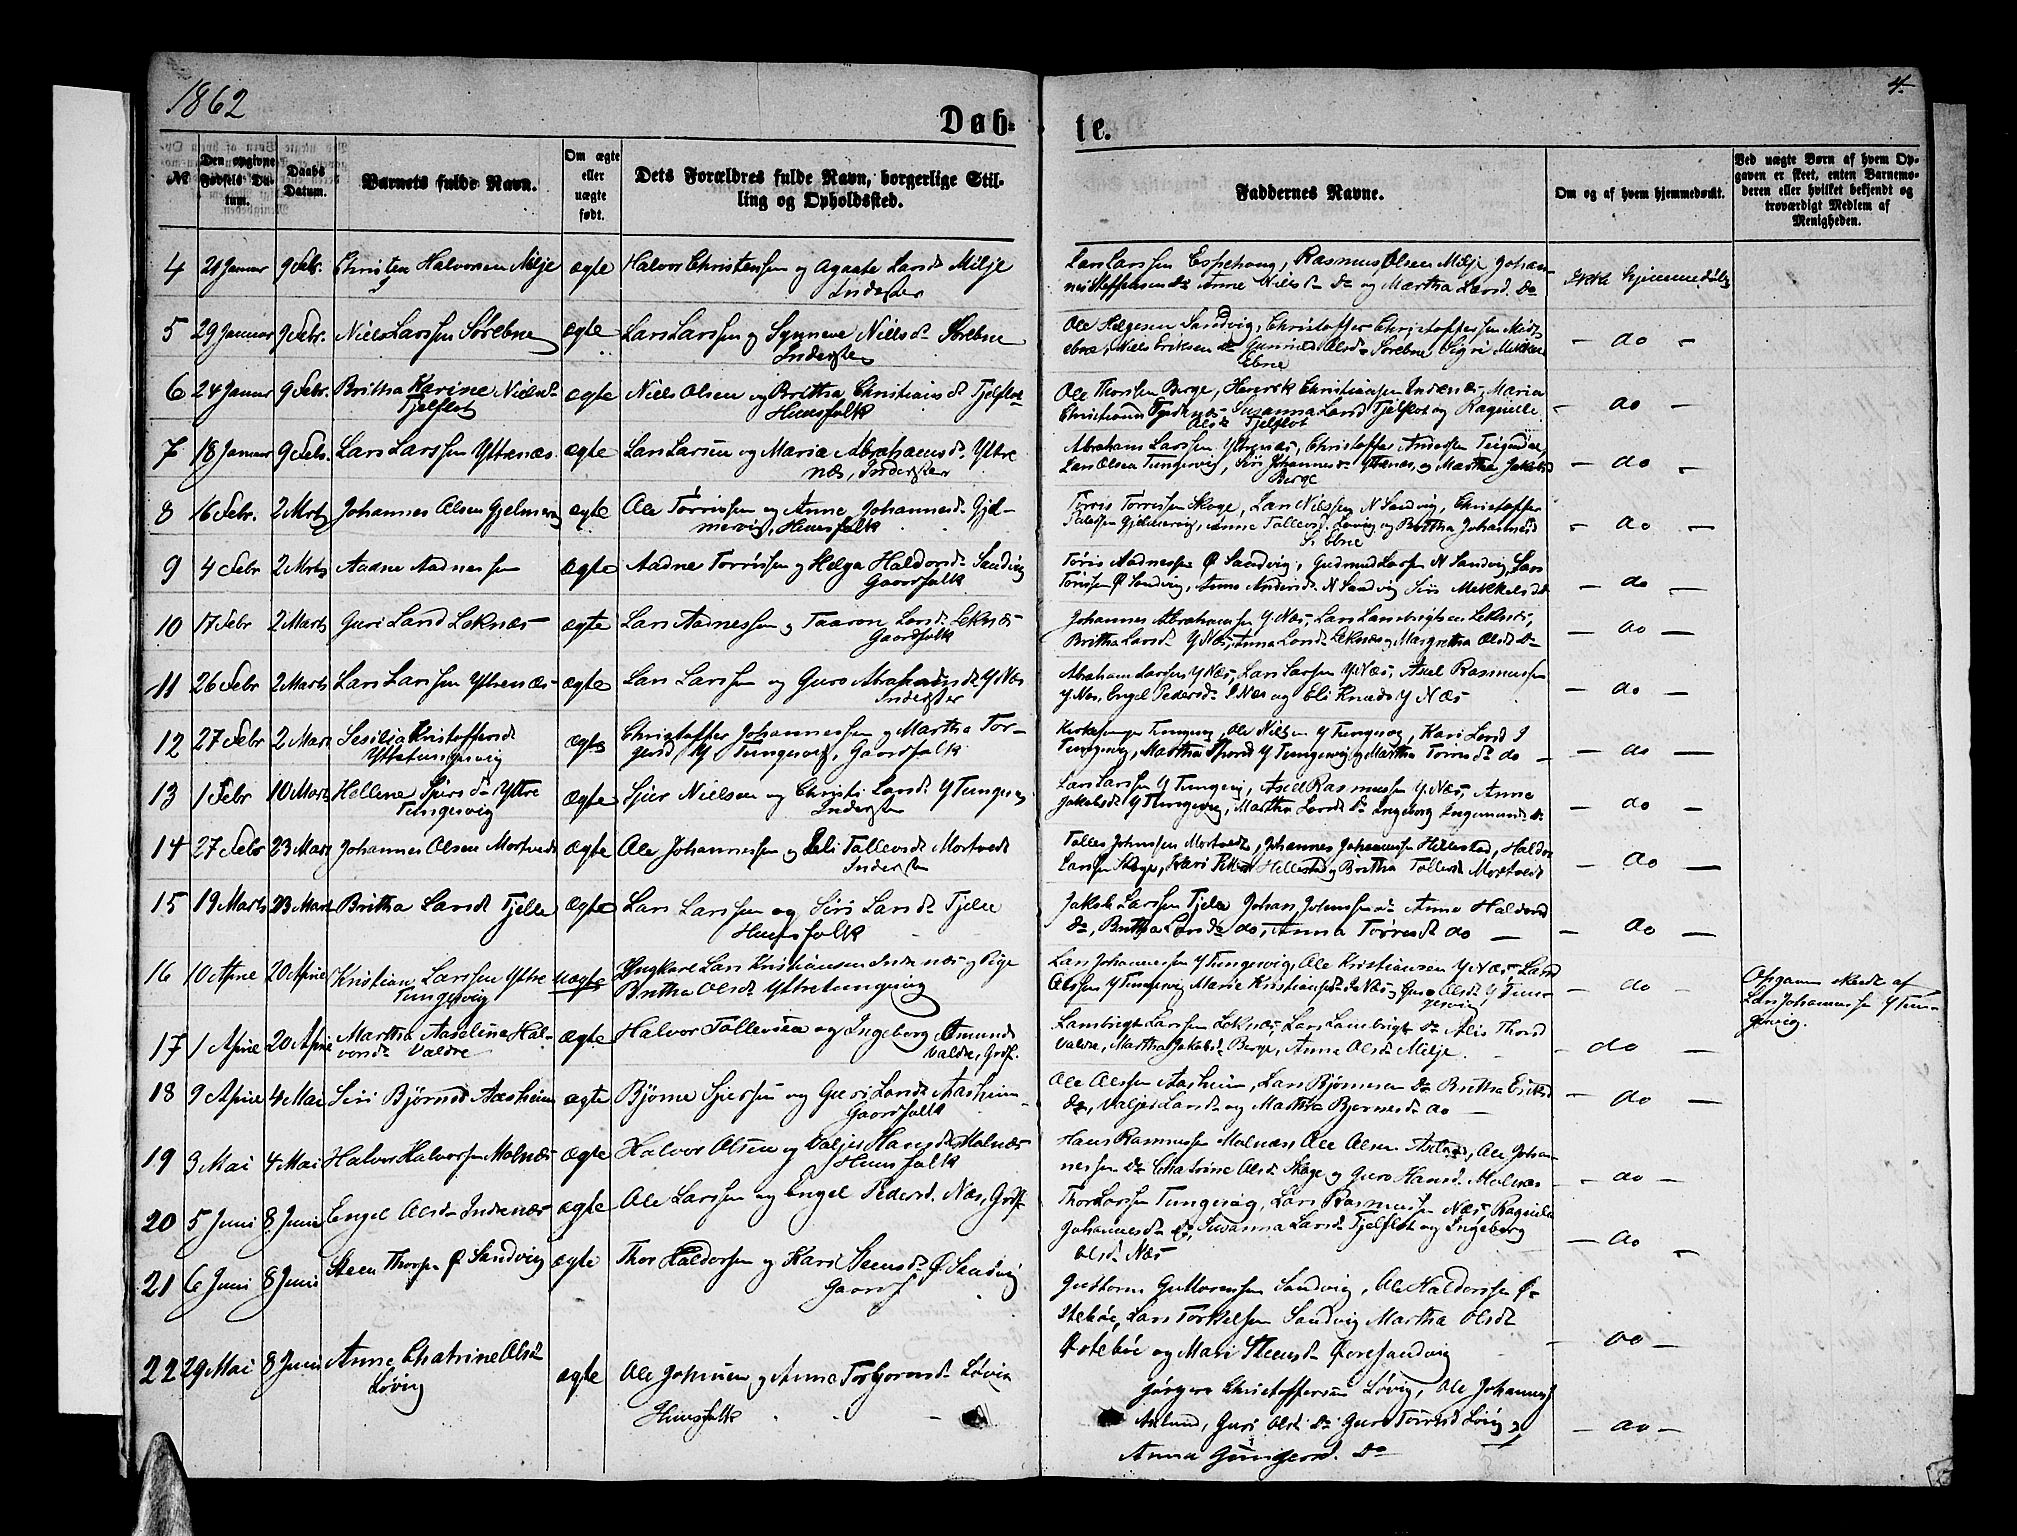 1862
4.
Døb-
te.
№
Den opgivne Fødsels Datum.
Daabs Datum.
Barnets fulde Navn.
Om ægte eller uægte født.
Dets Forældres fulde Navn, borgerlige Stilling og Opholdssted.
Faddernes Navne.
Om og af hvem hjemmedøbt.
Ved uægte Børn af hvem Opgaven er skeet, enten Barnemoderen eller hvilket bekjendt og troværdigt Medlem af Menigheden.
4 21 Januar 9 Febr. Christen Halvorsen Milje ægte Halvor Christensen og Agaate Larsd. Milje
Inderster
Lars Larssen Espehoug, Rasmus Olsen Milje Johan-
nes Steffensen do Anne Nielsd do og Martha Larsd. do
Ikke hjemmedøbt
5 29 Januar 9 Febr. Niels Larssen Sørebne ægte Lars Larssen og Synneve Nielsd Sørebne
Inderster
Ole Helgesen Sandvig, Christoffer Christoffersen Midt
ebne, Niels Eriksen do Gunnild Olsd. Sørebne Sigri Mikkels
Ebne
- do -
6 24 Januar 9 Febr. Britha Karine Nielsd. ægte Niels Olsen og Britha Christiansd Tjelflot
Tjelflot
Huusfolk
Ole Thorsen Berge, Henrik Christiansen Indrenæs, Maria
Christiansd Susanna Larsd Tjelflot og Ragnilde
Olsd. Tjelflot
- do -
7 18 Januar 9 Febr. Lars Larssen Yttrenæs ægte Lars Larsen og Maria Abrahamsd. Yttre
næs, Inderster
Abraham Larssen Yttrenæs, Christoffer Anderssen Teigedal,
Lars Olsen Tungesvig, Siri Johannesd. Yttrenæs, og Martha Jakobsd
Berge
- do -
8 16 Febr. 2 Marts Johannes Olsen Gjelmervig ægte Ole Tørrissen og Anne Johannesd. Gjel-
mervig, Huusfolk
Torris Torrissen Skoge, Lars Nielssen N Sandvig, Christoffer
Pederssen Gjelmervig, Anne Tollevsd. Løvig og Britha Johannesd
S. Ebne
- do -
9 4 Febr 2 Marts Aadne Aadnessen ægte Aadne Torrissen og Helga Haldorsd. Sandvig
Gaardfolk
Tøris Aadnessen Ø Sandvig, Gudmund Larsen N Sandvig, Lars
Tørissen Ø Sandvig, Anna Andersd. N Sandvig Siri Mikkelsd do
- do -
10 17 Febr 2 Marts Guri Larsd Leknæs ægte Lars Aadnessen og Taaron Larsd. Leknæs
Gaardfolk
Johannes Abrahamsen Y Næs, Lars Lambrigtsen Leknæs,
Britha Larsd. Y Næs, Anna Larsd. Leknæs og Margretha Olsd do
- do -
11 26 Febr 2 Marts Lars Larssen Yttrenæs ægte Lars Larssen og Guro Abrahamsd Y Næs
Inderster
Abraham Larssen Y Næs, Lars Larssen Y Næs, Axel Rasmussen
Y Næs, Engel Pedersd. I Næs og Eli Knudsd Y Næs
- do -
12 27 Febr 2 Mars Sesilia Kristoffersd. ægte Christoffer Johannessen og Martha Tor-
Yttretungesvig
Y Tungesvig, Gaardfolk
Kirkesanger Tungesvig, Ole Nilsen Y Tungesvig, Kari Larsd I
Tungesvig, Martha Thorsd Y Tungesvig og Martha Torresd. do
- do -
13 1 Febr 10 Marts Hellene Sjursd. Yttre ægte Sjur Nielsen og Christi Larsd. Y Tungesv
Tungesvig
Inderster
Lars Larssen Y Tungesvig, Axel Rasmussen Y Næs, Anna
Jakobsd Y Tungesvig, Martha Larsd do Ingeborg Ingemundsd do
- do -
14 27 Febr 23 Mars Johannes Olsen Mortvedt ægte Ole Johannessen og Eli Tollevsd Mortvedt
Inderster
Tolles Johnsen Mortvedt, Johannes Johannessen Hellestad, Haldor
Larsen Skoge, Kari Hellestad og Britha Tollevsd Mortvedt
- do -
15 19 Marts 23 Mars Britha Larsd Tjelle ægte Lars Larssen og Siri Larsd. Tjelle
Huusfolk
Jakob Larssen Tjelle Johan Johnssen do Anna Haldorsd
do, Britha Larsd do, Anna Torresd. do
- do -
16 10 Aprie 20 Aprie Kristian Larssen Yttre uægte Ungkarl Lars Kristiansen Indrenæs og Pige
Tungesvig
Britha Olsd. Yttretungesvig
Lars Johannessen Y Tungesvig, Ole Kristiansen Y Næs, Lars
Olssen Y Tungesvig Marie Kristiansd I Næs og Guro Olsd. Y Tun-
gesvig
- do -
Opgaven skeedt af
Lars Johannessen Y Tun-
gesvig.
17 1 Aprie 20 Aprie Martha Aaselina Hal- ægte Halvor Tollevsen og Ingeborg Amunds
vorsd. Valdre
Valdre, Grdf.
Lambrigt Larssen Leknæs, Lars Lambrigts. do Alis Thorsd
Valdre, Martha Jakobsd. Berge, Anna Olsd. Milje.
- do -
18 9 Aprie 4 Mai Siri Bjørnsd Aasheim ægte Bjørne Sjurssen og Guri Larsd. Aasheim
Gaardfolk
Ole Olssen Aasheim, Lars Bjørnesen do Britha Eriksd
do, Valjer Larsd. og Martha Bjørnesd. do
- do -
19 3 Mai 4 Mai Halvor Halvorssen Molnæs ægte Halvor Olsen og Valjer Hansd. Molnæs
Huusfolk
Hans Rasmussen Molnæs, Ole Olsen Axland, Ole Johan-
nessen do Chatrine Olsd. Skoge og Guro Hansd. Molnæs
- do -
20 5 Juni 8 Juni Engel Olsd. Indrenæs ægte Ole Larssen og Engel Pedersd. Næs, Grdf
Thor Larssen Tungesvig, Lars Rasmussen Næs, Ragnilda
Johannesd. do, Susanna Larsd. Tjelflot og Ingeborg
Olsd. Næs
- do -
21 6 Juni 8 Juni Steen Thorsen Ø Sandvig ægte Thor Haldorsen og Kari Steensd. Ø Sandvig
Gaardf
Guttorm Guttormssen Sandvig, Ole Haldorssen Ø-
stebøe, Lars Torkelsen Sandvig Martha Olsd
Østebøe og Mari Steensd. Øvresandvig
- do -
22 29 Mai 8 Juni Anne Chatrine Olsd. ægte Ole Johnsen og Anna Torbjørnsd. Løvig
Løvig
Huusfolk
Jørgen Christoffersen Løvig, Ole Johannes
Axland, Guri Olsd. do Guro Tørresd Løvig og
Anna do
- do -